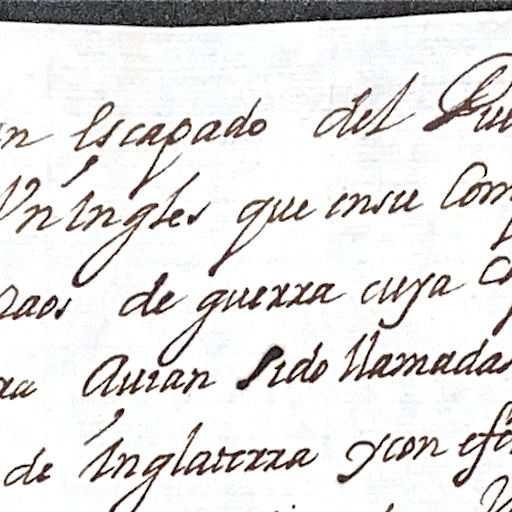 n escapado del Pue
Un Ingles que ensu Com
raos de guerra cuya
ra Auian sido llamadas
de Inglaterra y con efe